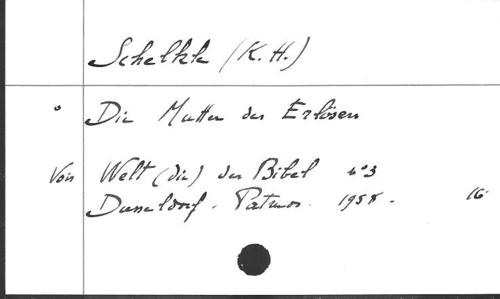 Schelkle (K. H.)
° Die Mutter des Erlösers
Voir Welt (die) der Bibel n°3
Dusseldorf. Patmos. 1958. 16